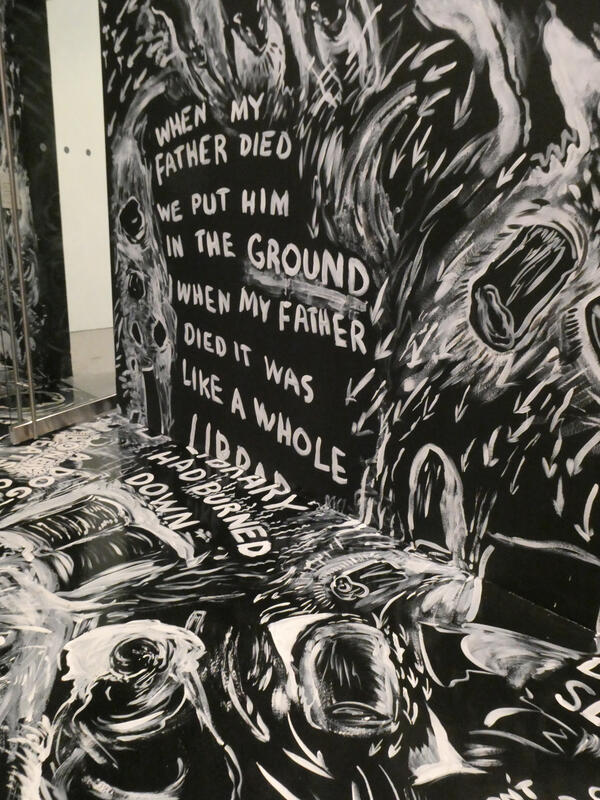 WHEN MY
FATHER DIED
WE PUT HIM
IN THE GROUND
WHEN MY FATHER
DIED IT WAS
LIKE A WHOLE
LIBRARY
HAD BURNED
DOWN